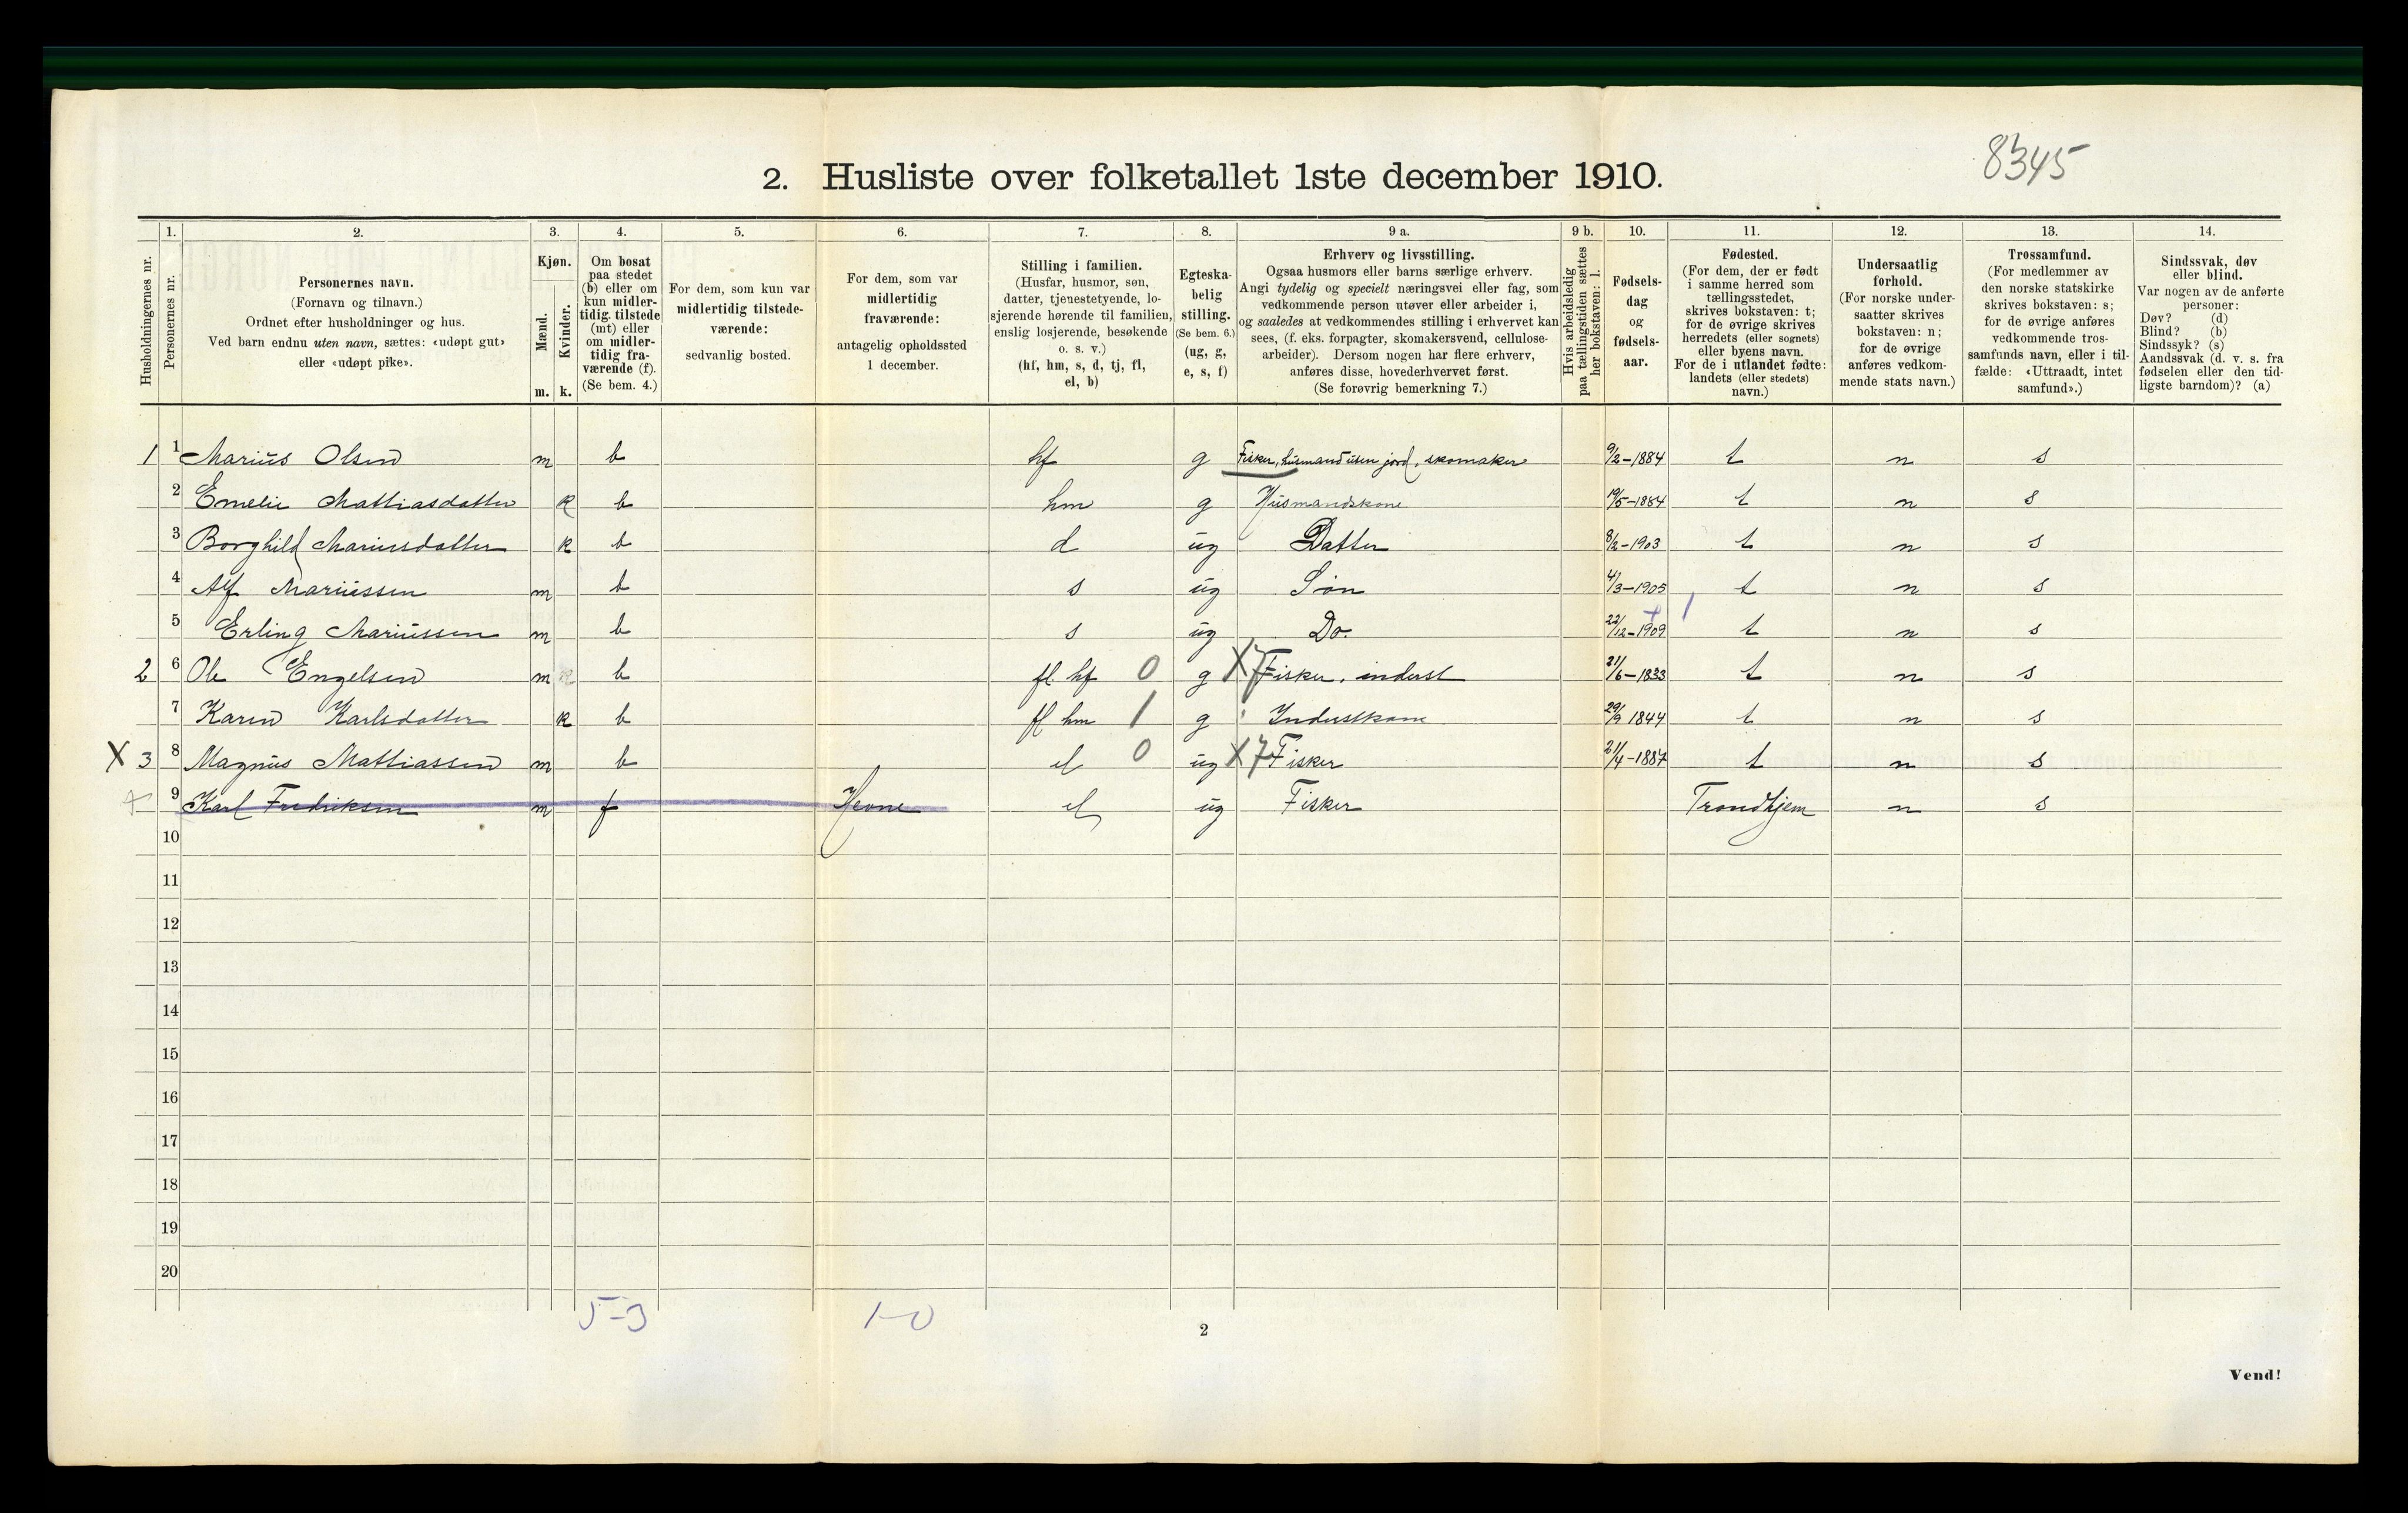 8345
2. Husliste over folketallet 1ste december 1910.
1. 2. 3. 4. 5. 6. 7. 8. 9 a. 9 b. 10. 11. 12. 13. 14.
Husholdningernes nr.
Personernes nr.
Personernes navn.
(Fornavn og tilnavn.)
Ordnet efter husholdninger og hus.
Ved barn endnu uten navn, sættes: «udøpt gut»
eller «udøpt pike».
Kjøn.
Mænd.
Kvinder.
m. k.
Om bosat
paa stedet
(b) eller om
kun midler-
tidig tilstede
(mt) eller
om midler-
tidig fra-
værende (f).
(Se bem. 4.)
For dem, som kun var
midlertidig tilstede-
værende:
sedvanlig bosted.
For dem, som var
midlertidig
fraværende:
antagelig opholdssted
1 december.
Stilling i familien.
(Husfar, husmor, søn,
datter, tjenestetyende, lo-
sjerende hørende til familien,
enslig losjerende, besøkende
o. s. v.)
(hf, hm, s, d, tj, fl,
el, b)
Egteska-
belig
stilling.
(Se bem. 6.)
(ug, g,
e, s, f)
Erhverv og livsstilling.
Ogsaa husmors eller barns særlige erhverv.
Angi tydelig og specielt næringsvei eller fag, som
vedkommende person utøver eller arbeider i,
og saaledes at vedkommendes stilling i erhvervet kan
sees, (f. eks. forpagter, skomakersvend, cellulose-
arbeider). Dersom nogen har flere erhverv,
anføres disse, hovederhvervet først.
(Se forøvrig bemerkning 7.)
Hvis arbeidsledig
paa tællingstiden sættes
her bokstaven: l.
Fødsels-
dag
og
fødsels-
aar.
Fødested.
(For dem, der er født
i samme herred som
tællingsstedet,
skrives bokstaven: t;
for de øvrige skrives
herredets (eller sognets)
eller byens navn.
For de i utlandet fødte:
landets (eller stedets)
navn.)
Undersaatlig
forhold.
(For norske under-
saatter skrives
bokstaven: n;
for de øvrige
anføres vedkom-
mende stats navn.)
Trossamfund.
(For medlemmer av
den norske statskirke
skrives bokstaven: s;
for de øvrige anføres
vedkommende tros-
samfunds navn, eller i til-
fælde: «Uttraadt, intet
samfund».)
Sindssvak, døv
eller blind.
Var nogen av de anførte
personer:
Døv? (d)
Blind? (b)
Sindssyk? (s)
Aandssvak (d. v. s. fra
fødselen eller den tid-
ligste barndom)? (a)
1 1 Marius Olsen m b hf g Fisker, husmand uten jord, skomaker 9/2-1884 t n s
2 Emelie Mathiasdatter k b hm g Husmandskone 19/5-1884 t n s
3 Borghild Mariusdatter k b d ug Datter 8/2-1903 t n s
4 Alf Mariussen m b s ug Søn 4/3-1905 t n s
5 Erling Mariussen m b s ug Do. 22/12-1909 t n s
2 6 Ole Engelsen m b fl. hf 0 g X7 Fisker, inderst 21/6-1833 t n s
7 Karen Karlsdatter k b fl hm 1 g Inderstkone 29/9 1844 t n s
X 3 8 Magnus Mathiassen m b el 0 ug X7 Fisker 21/4-1887 t n s
9 Karl Fredriksen m f Hevne el ug Fisker Trondhjem n s
10
11
12
13
14
15
16
17
18
19
20
5-3 1-0
2
Vend!